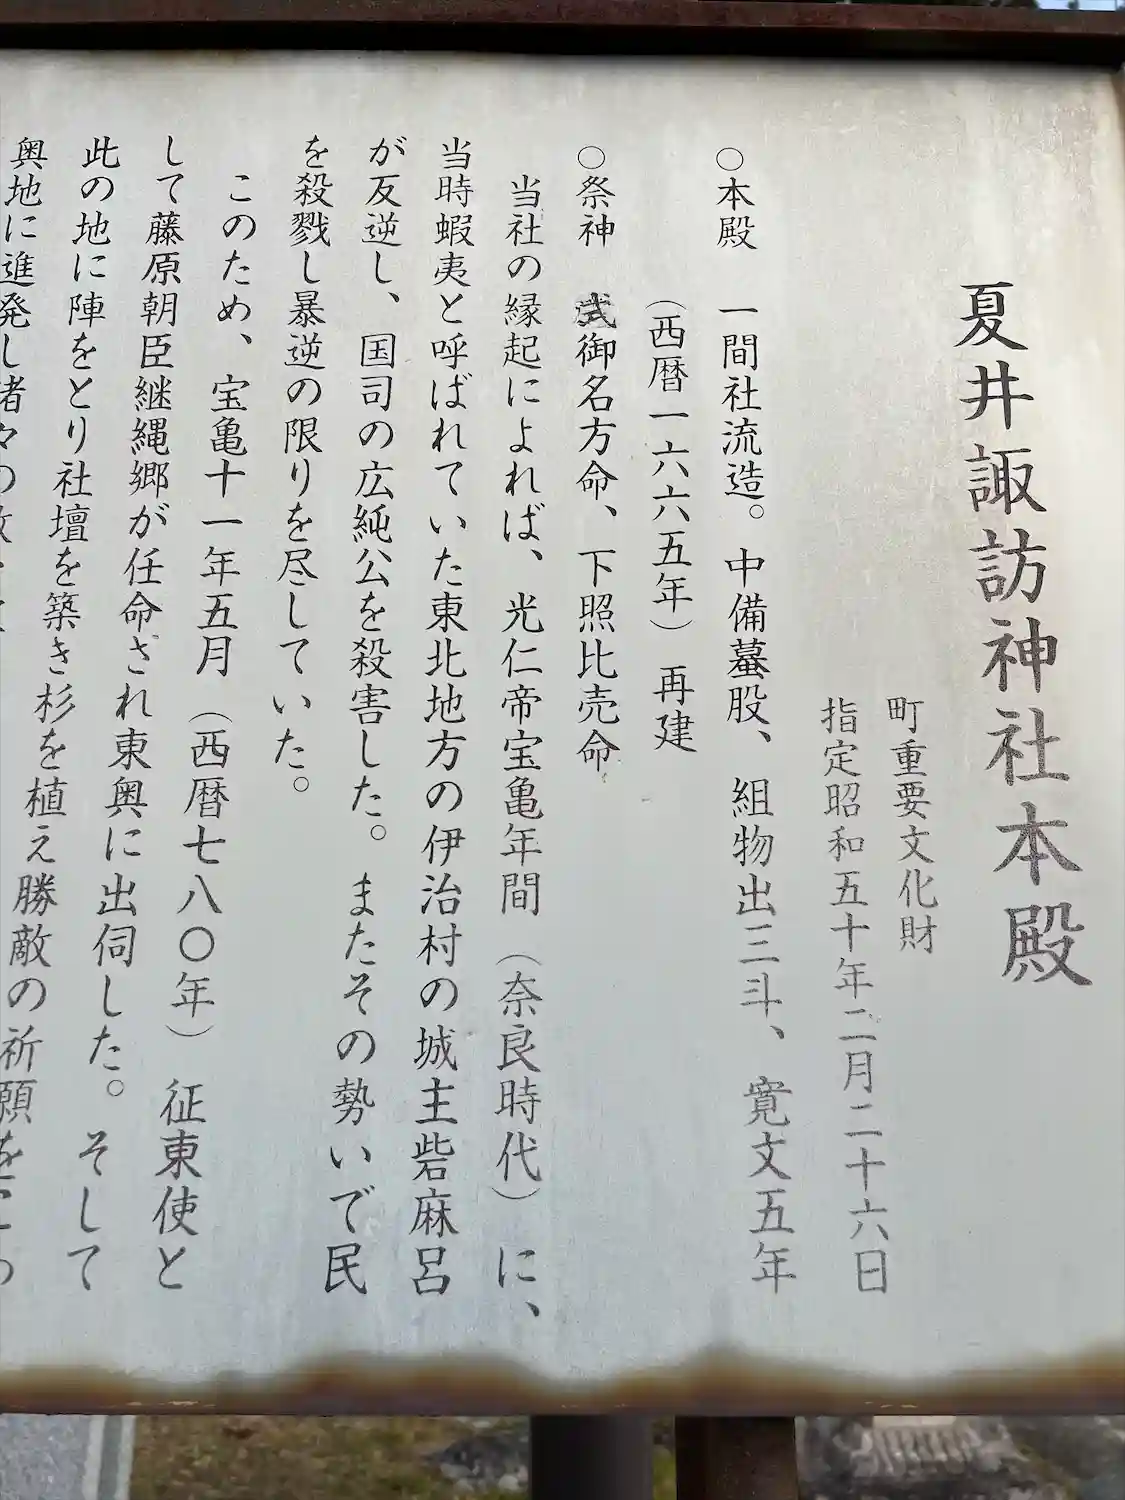 夏井諏訪神社本殿
町重要文化財
指定昭和五十年二月二十六日
○本殿　一間社流造。中備蟇股、組物出三斗、寛文五年
（西暦一六六五年）再建
○祭神　御名方命、下照比売命
当社の縁起によれば、光仁帝宝亀年間（奈良時代）に、
当時蝦夷と呼ばれていた東北地方の伊治村の城主砦麻呂
が反逆し、国司の広純公を殺害した。またその勢いで民
を殺戮し暴逆の限りを尽していた。
このため、宝亀十一年五月（西暦七八〇年）征東使と
して藤原朝臣継縄郷が任命され東奥に出伺した。そして
此の地に陣をとり社壇を築き杉を植え勝敵の祈願をこ
奥地に進発し諸々の